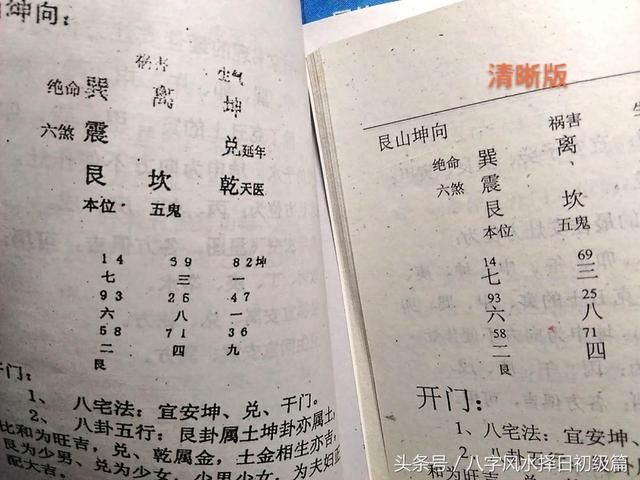 山坤向
祸害 生气
绝命 巽 离 坤
六煞 震 兑 延年
艮 坎 乾 天医
本位 五鬼
14 39 82 坤
七 三 一
93 25 47
六 八 一
58 71 36
二 四 九
艮
开门:
1、 八宅法: 宜安坤、兑、干门。
2、 八卦五行: 艮卦属土坤卦亦属土,
比和为旺吉, 兑、乾属金, 土金相生亦吉,
艮为少男、兑为少女, 少男少女, 为夫妇正
配大吉。
清晰版
艮山坤向
祸害
绝命 巽 离
六煞 震
艮 坎
本位 五鬼
14 69
七 三
93 25
六 八
58 71
二 四
艮
开门:
1、 八宅法: 宜安
2、 八卦五行
和为旺
头条号 / 八字风水择日初级篇